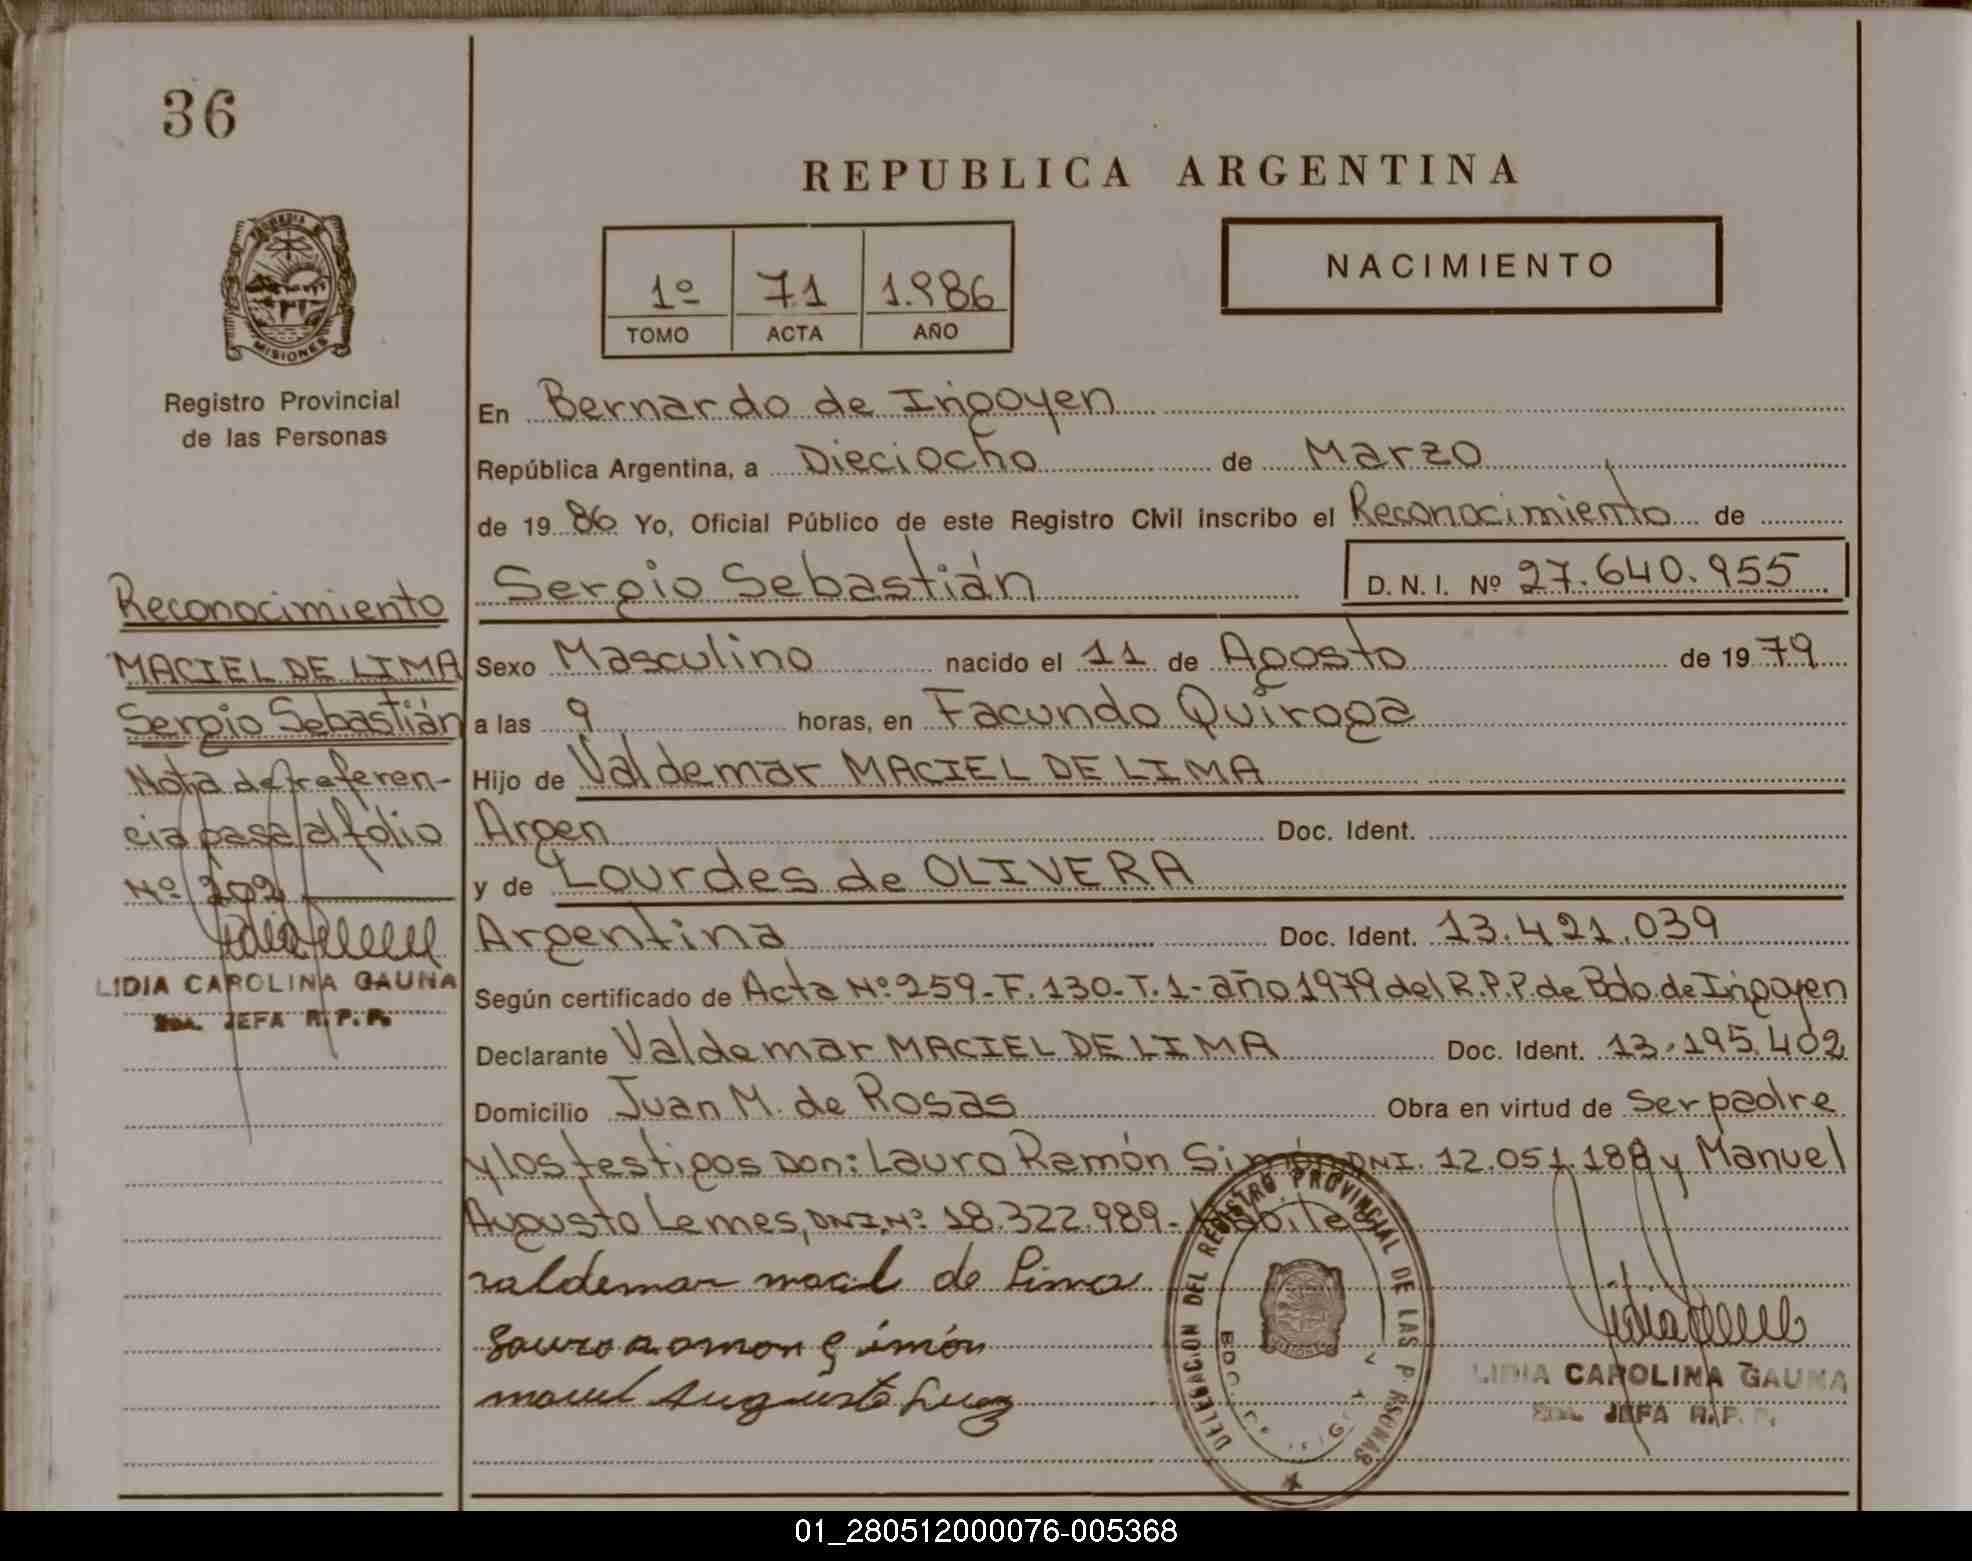 36
REPUBLICA ARGENTINA
NACIMIENTO
1º 71 1.986
TOMO ACTA AÑO
MISIONES
Registro Provincial
de las Personas
En Bernardo de Irigoyen
República Argentina, a Dieciocho de Marzo
de 19 86 Yo, Oficial Público de este Registro Civil inscribo el Reconocimiento de
Sergio Sebastián D. N. I. Nº 27.640.955
Sexo Masculino nacido el 11 de Agosto de 19 79
a las 9 horas, en Facundo Quiroga
Hijo de Valdemar MACIEL DE LIMA
Argen Doc. Ident.
y de Lourdes de OLIVERA
Argentina Doc. Ident. 13.421.039
Según certificado de Acta Nº 259-F.130-T.1-año 1979 del R.P.P. de Bdo de Irigoyen
Declarante Valdemar MACIEL DE LIMA Doc. Ident. 13.195.402
Domicilio Juan M. de Rosas Obra en virtud de Ser padre
y los testigos Don: Lauro Ramón Simón DNI. 12.051.188 y Manuel
Augusto Lemes, DNI.Nº 18.322.989- Hábiles
valdemar macil de Lima
Lauro ramon Simón
manuel Augusto
Reconocimiento
MACIEL DE LIMA
Sergio Sebastián
Nota de referen-
cia pasa al folio
Nº 202
LIDIA CAROLINA GAUNA
JEFA R.P.P.
DELEGACION DEL REGISTRO PROVINCIAL DE LAS PERSONAS
LIDIA CAROLINA GAUNA
JEFA R.P.P.
01_280512000076-005368